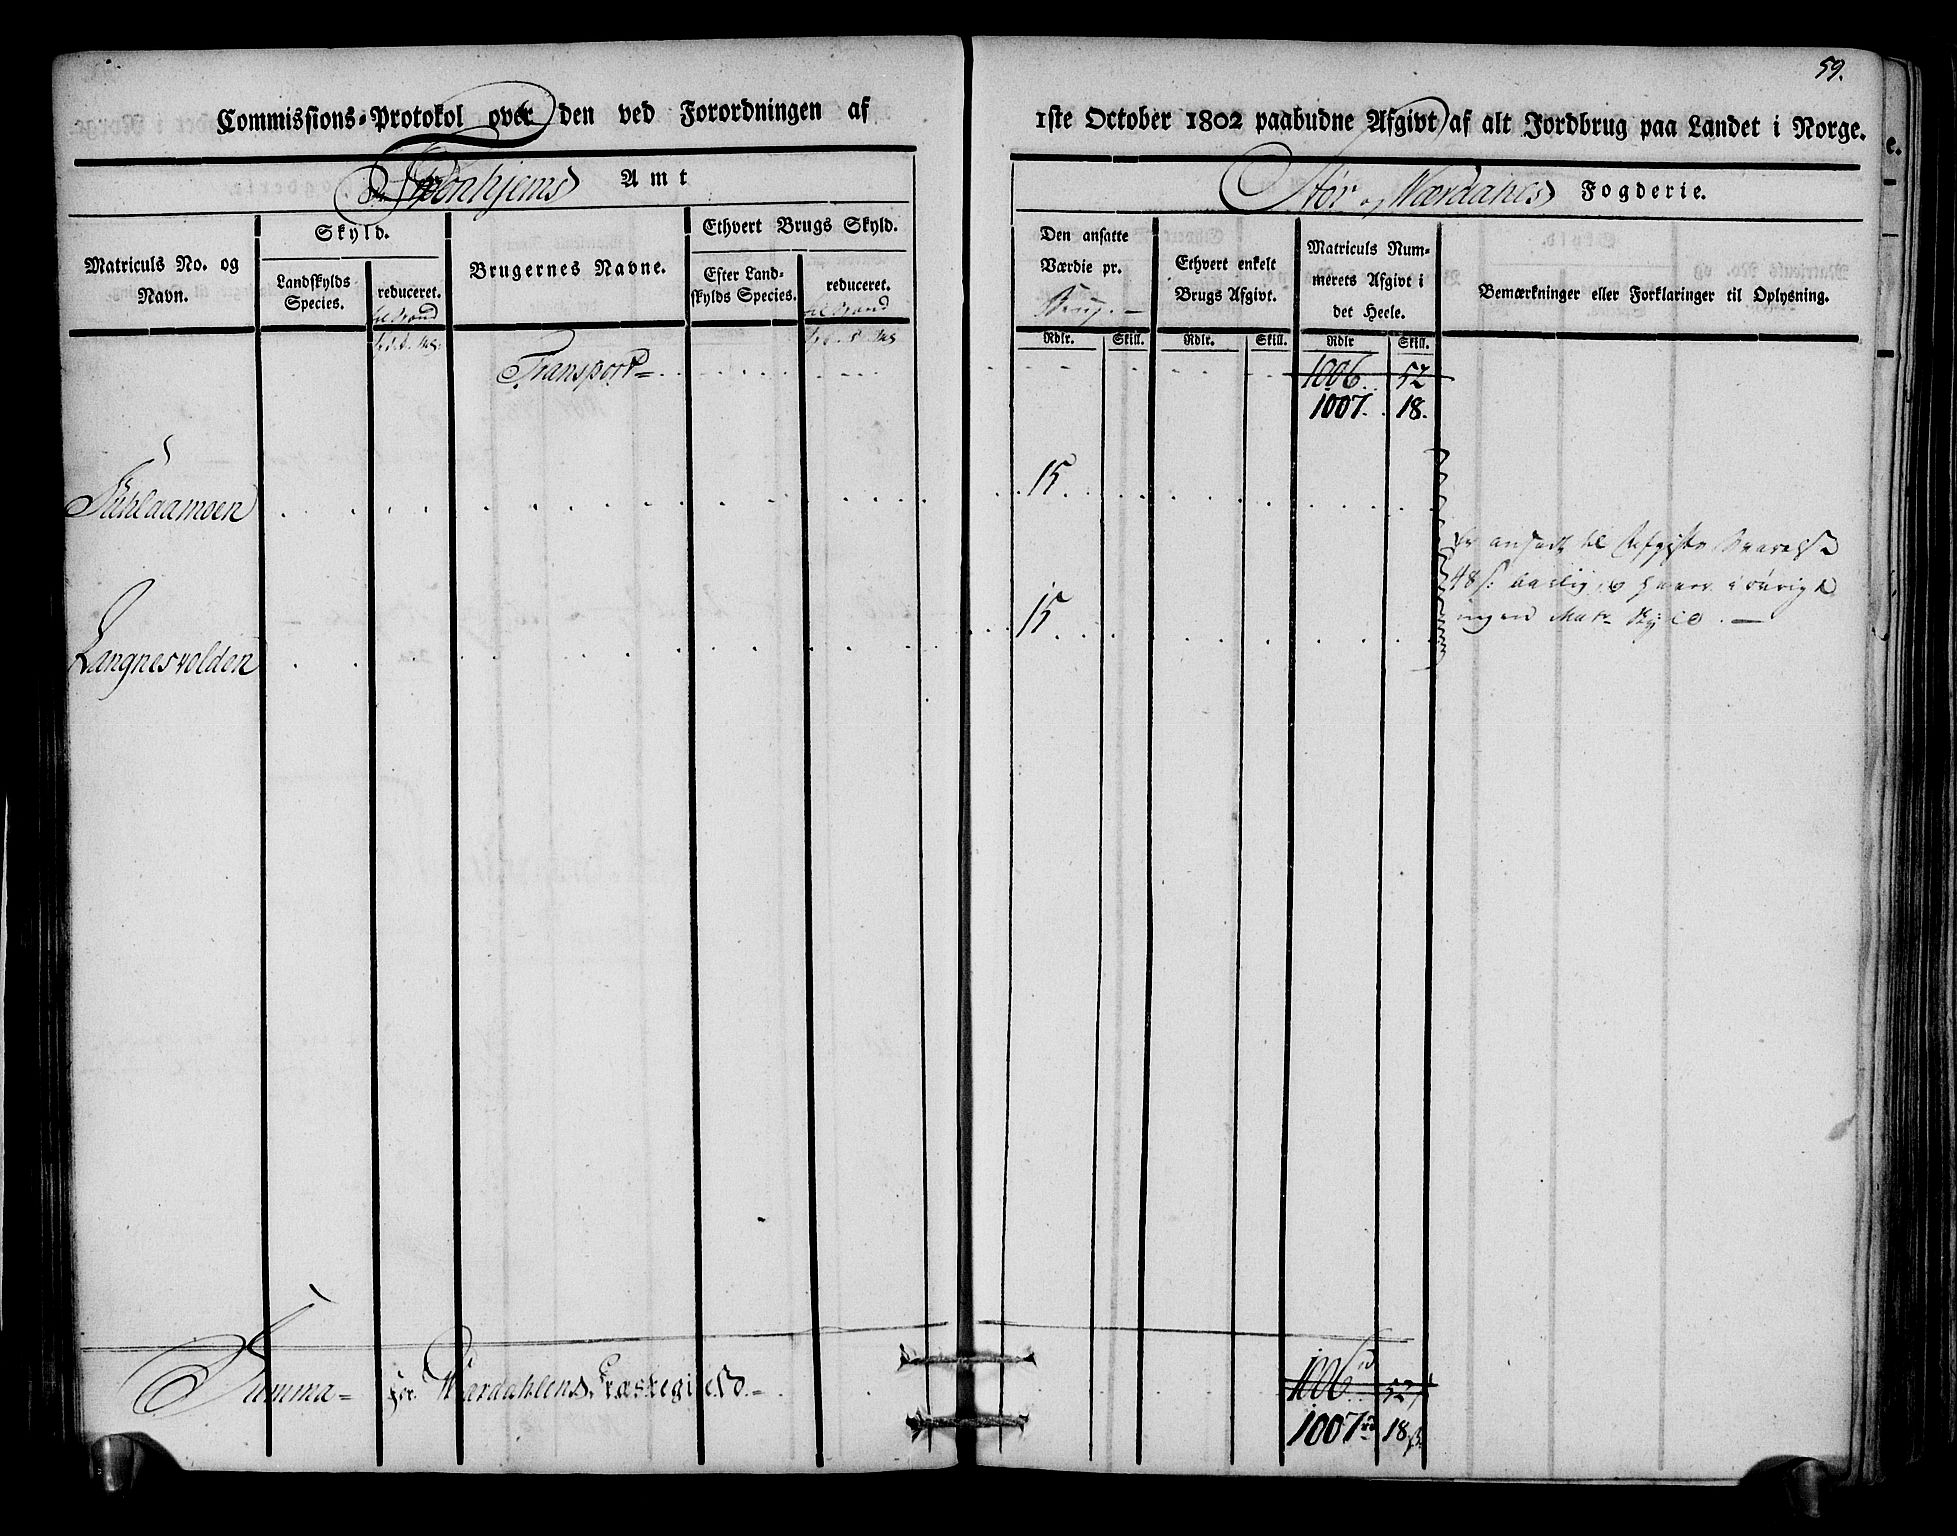 59.
Commissions-Protokol over den ved Forordningen af 1ste October 1802 paabudne Afgivt af alt Jordbrug paa Landet i Norge.
Tronhjems Amt
Stør og Værdahls Fogderie.
Matriculs No. og Navn.
Skyld.
Landskylds Species.
reduceret.
Brugernes Navne.
Ethvert Brugs Skyld.
Efter Landskylds Species.
reduceret.
Den ansatte Værdie pr.
Brug.
Ethvert enkelt Brugs Afgivt.
Matriculs Nummerets Afgivt i det Heele.
Bemærkninger eller Forklaringer til Oplysning.
Rdlr. Skill. Rdlr. Skill. Rdlr Skill.
Transport 1006. 52
1007. 18.
15.
er ansadt til Afgift
48 s: aarlig, og i øvrigt
ingen Matr
15.
Langnesvolden
Summa for Værdahlens Præstegield 1006 52
1007 18